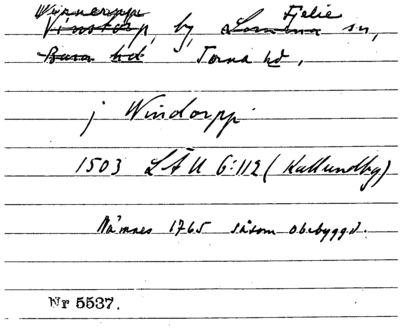 Fjelie
Vinstorp, by, Lomma sn,
Bara hd Torna hd,
j Windorpp
1503 LÄU 6:112 (Kallundby)
Nämnes 1765 såsom obebyggd.
Nr 5537.